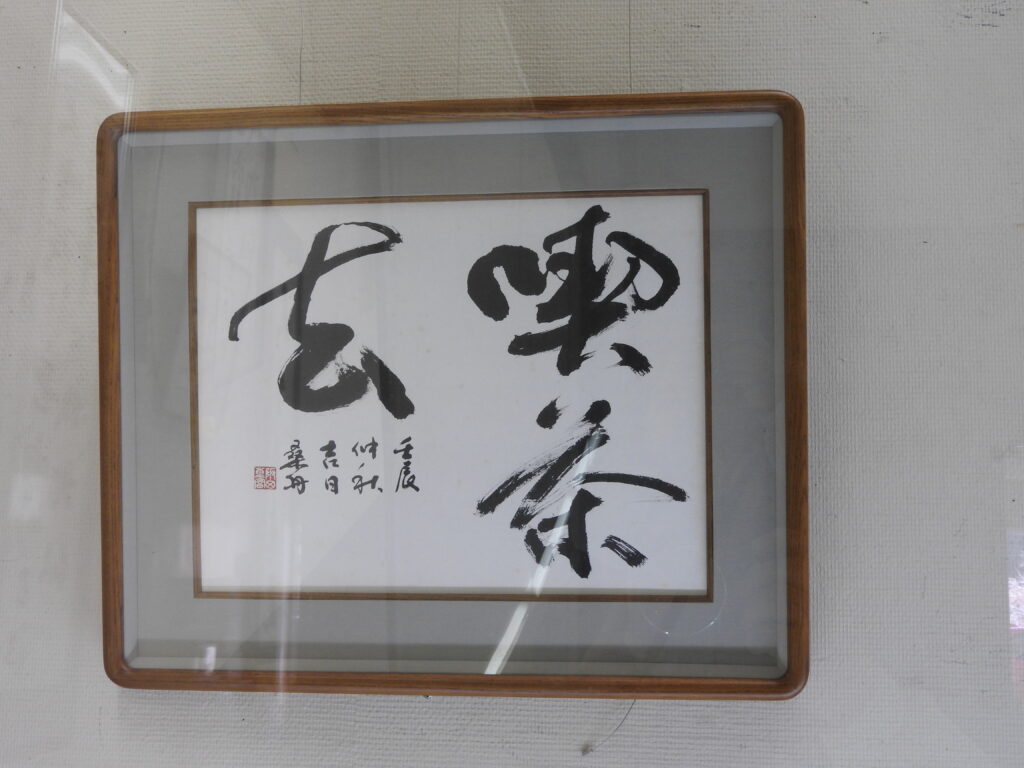 喫茶
去
壬辰
仲秋
吉日
桑舟